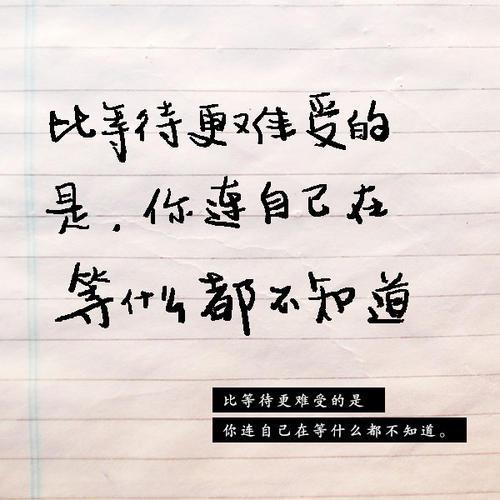 比等待更难受的
是，你连自己在
等什么都不知道
比等待更难受的是
你连自己在等什么都不知道。